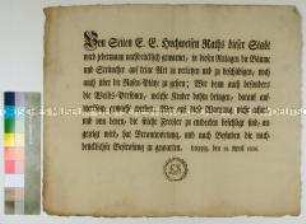 Von Seiten E. E. Hochweisen Raths dieser Stadt
wird jedermann nachdrücklich gewarnet, in diesen Anlagen die Bäume
und Sträucher auf keine Art zu verletzen und zu beschädigen, noch
auch über die Rasen-Plätze zu gehen; Wie denn auch besonders
die Weibs-Personen, welche Kinder dahin bringen, darauf
aufmerksam gemacht werden. Wer auf diese Warnung nicht achtet
und von denen, die solche Frevler zu entdecken beauftragt sind,
angezeigt wird, hat Verantwortung, und nach Befinden die
nachdrücklichste Bestrafung zu gewarten. Leipzig, den April